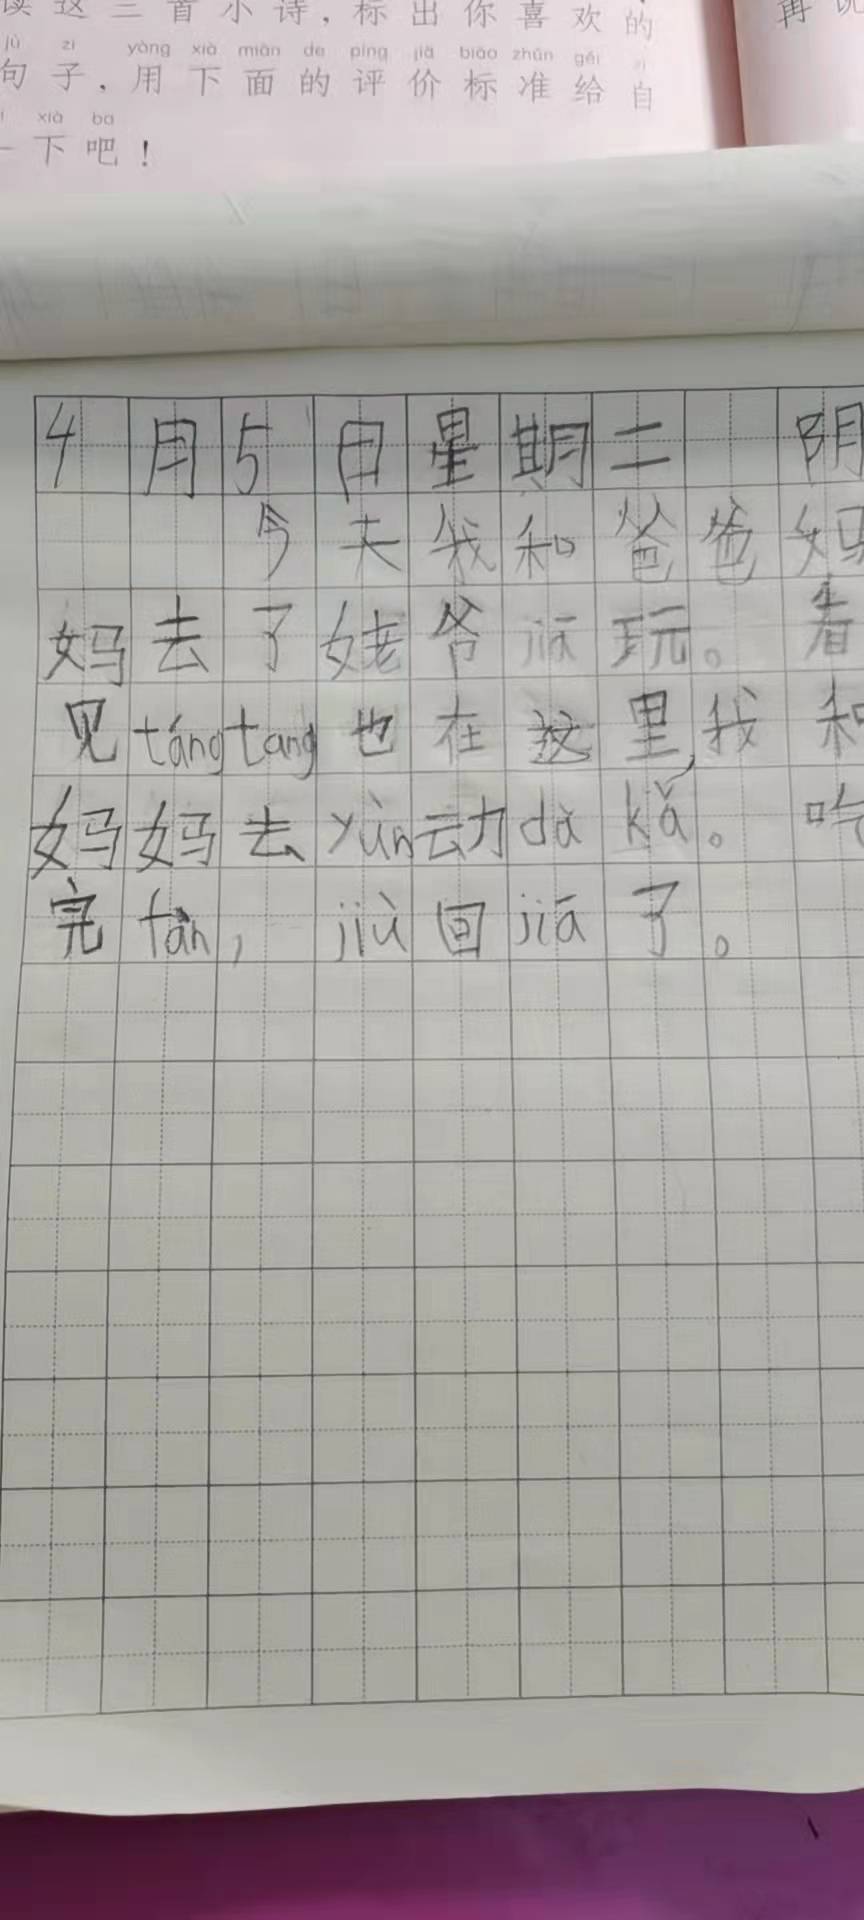 读这三首小诗，标出你喜欢的
jù zi yòng xià miàn de píng jià biāo zhǔn gěi zì
句子，用下面的评价标准给自
xià ba
一下吧！
再说
4月5日星期二 阴
今天我和爸爸妈
妈去了姥爷jiā玩。看
见tángtang也在这里,我和
妈妈去yùn动dǎ kǎ。吃
完fàn，jiù回jiā了。